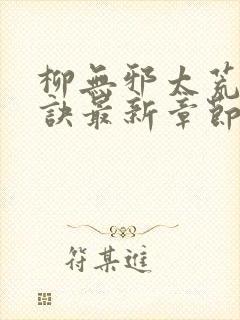 柳無邪太荒
訣最新章節
符某進